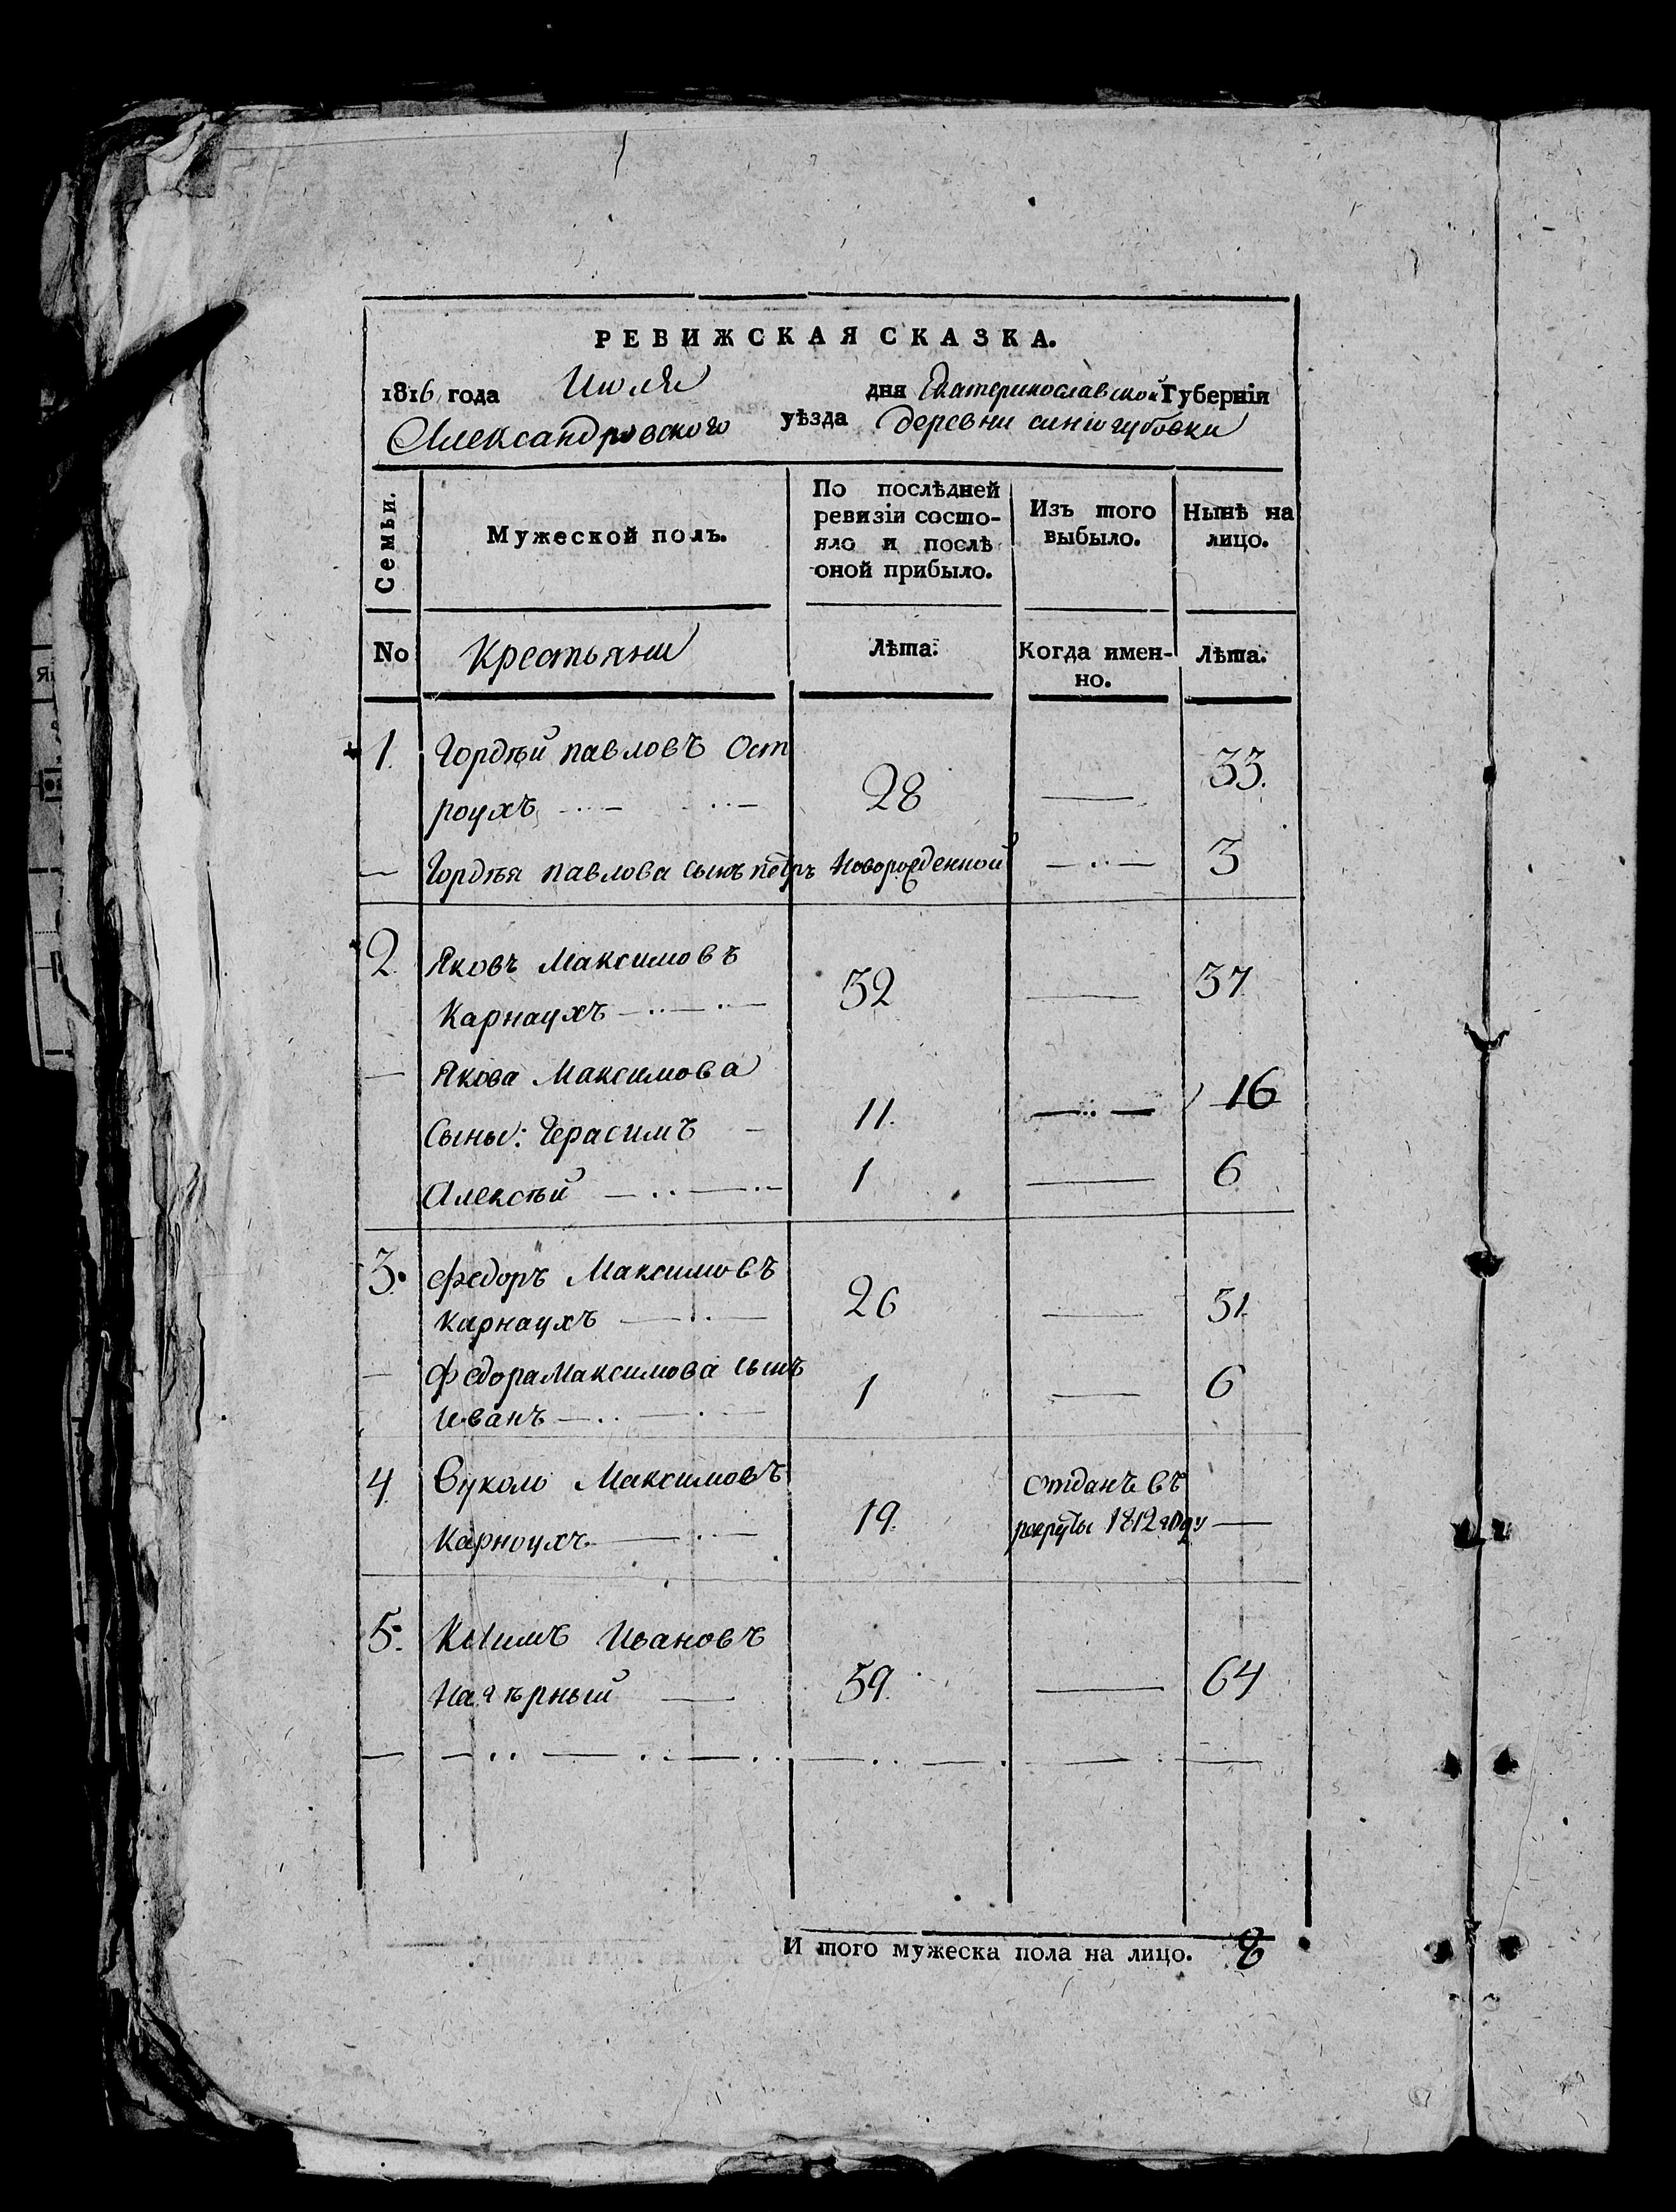 РЕВИЖСКАЯ СКАЗКА.
1816 года Июля дня Екатеринославской Губерніи
Александровского уѣзда деревни синіогубовки
Семьи.
Мужеской полъ.
По послѣдней
ревизіи состо-
яло и послѣ
оной прибыло.
Изъ того
выбыло.
Нынѣ на
лицо.
No
Крестьяни
Лѣта.
Когда имен-
но.
Лѣта.
1. Гордѣй павловъ Ост
роухъ 28 33.
Гордѣя павлова сынъ петръ Новорожденной 3
2. Яковъ Максимовъ
Карнаухъ 32 37
Якова Максимова
Сыны: Герасимъ 11. 16
Алексѣй 1 6
3. Федоръ Максимовъ
карнаухъ 26 31.
Федора Максимова сынъ
Иванъ 1 6
4 Вуколо Максимовъ
Карноухъ 19. отданъ въ
рекруты 1812 году
5. Климъ Ивановъ
59. 64
И того мужеска пола на лицо. 8